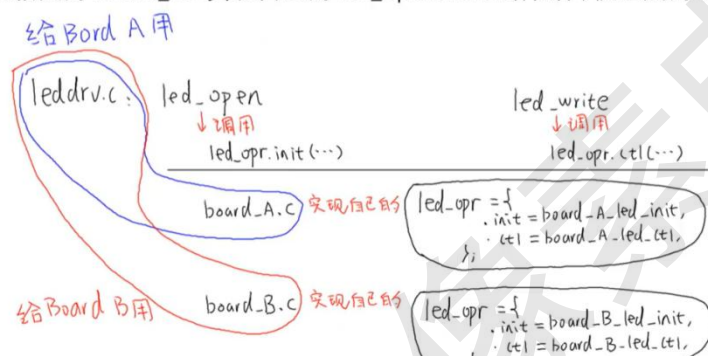 给Bord A用
leddrv.c: led_open led_write
↓调用 ↓调用
led_opr.init(…) led_opr.ctl(…)
board_A.c 实现自己的 led_opr = {
.init = board_A_led_init,
.ctl = board_A_led_ctl,
};
给Board B用 board_B.c 实现自己的 led_opr = {
.init = board_B_led_init,
.ctl = board_B_led_ctl,